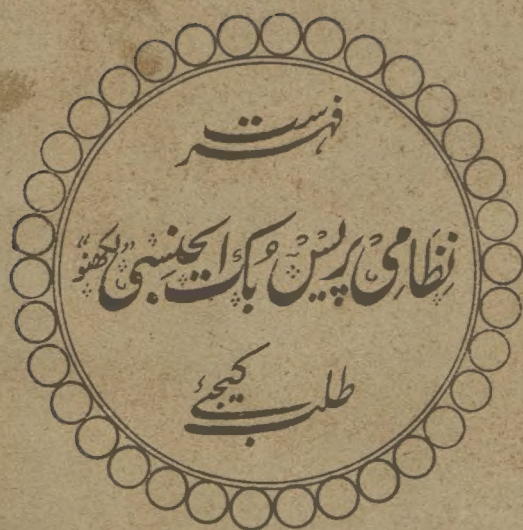 فہرست
نظامی پریس بک ایجنسی "لکھنؤ"
طلب کیجئے